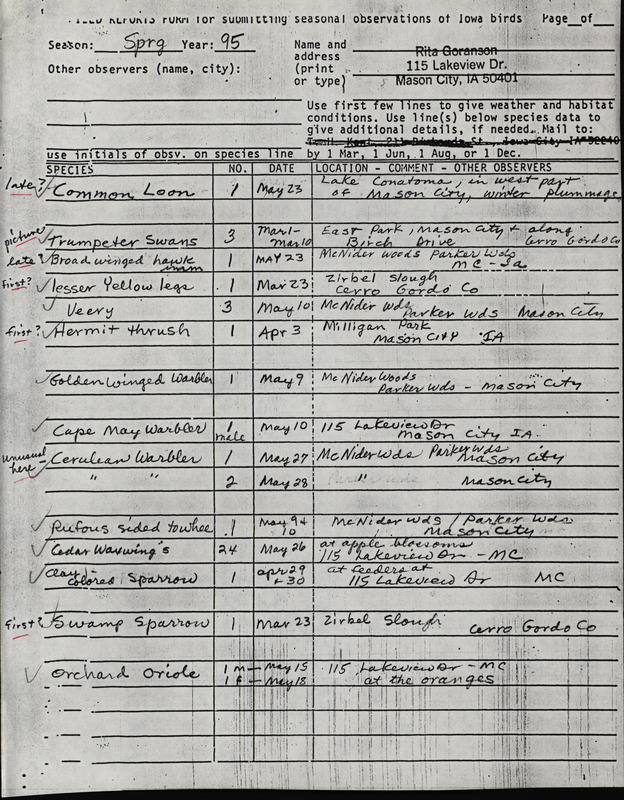 FIELD REPORTS FORM for submitting seasonal observations of Iowa birds Page__of__
Season: Sprg Year: 95 Name and Rita Goranson
address 115 Lakeview Dr.
Other observers (name, city): (print Mason City, IA 50401
or type)
Use first few lines to give weather and habitat
conditions. Use line(s) below species data to
give additional details, if needed. Mail to:
use initials of obsv. on species line by 1 Mar, 1 Jun, 1 Aug, or 1 Dec.
SPECIES NO. DATE LOCATION - COMMENT - OTHER OBSERVERS
late? ✓ Common Loon 1 May 23 Lake Conatoma, in west part
of Mason City, winter plummage
picture ✓ Trumpeter Swans 3 Mar 1- Mar 10 East Park, Mason City + along
Birch Drive Cerro Gordo Co
late? ✓ Broad winged hawk imm 1 MAY 23 McNider woods Parker Wds
MC - Ia
first? ✓ lesser Yellow legs 1 Mar 23 Zirbel Slough
Cerro Gordo Co
✓ Veery 3 May 10 McNider Wds Parker Wds Mason City
first? ✓ Hermit thrush 1 Apr 3 Milligan Park
Mason City IA
✓ Golden winged Warbler 1 May 9 McNider Woods
Parker Wds - Mason City
✓ Cape May Warbler 1 male May 10 115 Lakeview Dr
Mason City IA.
unusual here - ✓ Cerulean Warbler 1 May 27 McNider Wds Parker Wds
Mason City
" " 2 May 28 " Mason City
✓ Rufous sided towhee 1 May 9 + 10 McNider Wds / Parker Wds
Mason City
✓ Cedar Waxwing's 24 May 26 at apple blossoms
115 Lakeview Dr - MC
✓ Clay-colored Sparrow 1 apr 29 + 30 at feeders at
115 Lakeview Dr MC
first? ✓ Swamp Sparrow 1 Mar 23 Zirbel Slough
Cerro Gordo Co
✓ Orchard Oriole 1 m - May 15 115 Lakeview Dr - MC
1 f - May 18 at the oranges